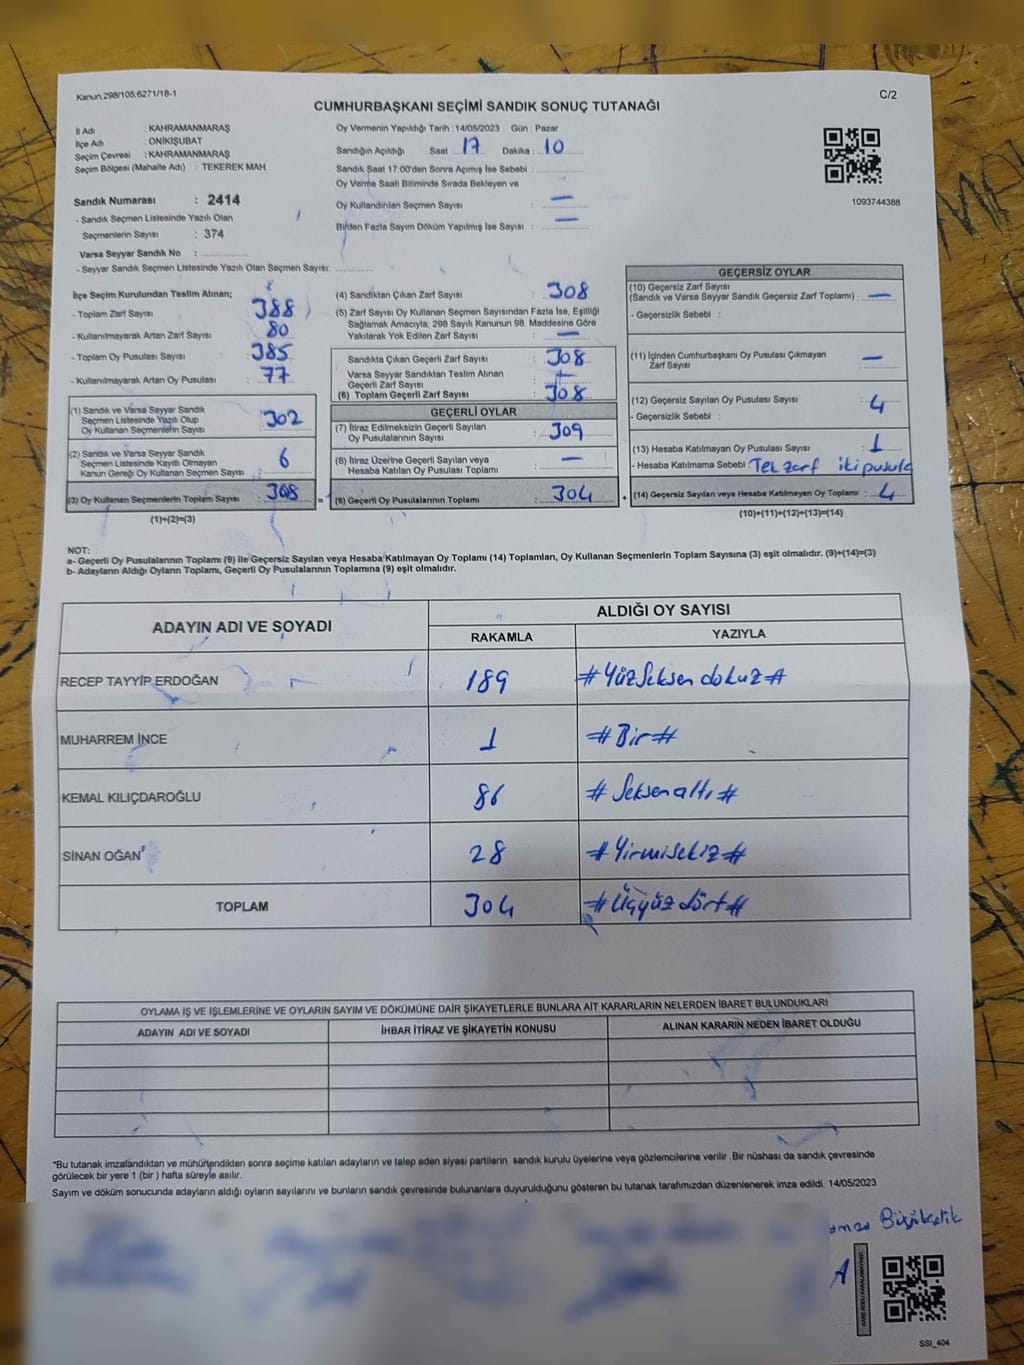 Kanun,298/105;6271/18-1
C/2
CUMHURBAŞKANI SEÇİMİ SANDIK SONUÇ TUTANAĞI
İl Adı : KAHRAMANMARAŞ
İlçe Adı : ONİKİŞUBAT
Seçim Çevresi : KAHRAMANMARAŞ
Seçim Bölgesi (Mahalle Adı) : TEKEREK MAH.
Sandık Numarası : 2414
- Sandık Seçmen Listesinde Yazılı Olan
Seçmenlerin Sayısı : 374
Varsa Seyyar Sandık No :
- Seyyar Sandık Seçmen Listesinde Yazılı Olan Seçmen Sayısı:
Oy Vermenin Yapıldığı Tarih : 14/05/2023 Gün : Pazar
Sandığın Açıldığı Saat : 17 Dakika : 10
Sandık Saat 17:00'den Sonra Açmış İse Sebebi :
Oy Verme Saati Bitiminde Sırada Bekleyen ve
Oy Kullandırılan Seçmen Sayısı : —
Birden Fazla Sayım Döküm Yapılmış İse Sayısı : —
1093744388
İlçe Seçim Kurulundan Teslim Alınan;
- Toplam Zarf Sayısı : 388
- Kullanılmayarak Artan Zarf Sayısı : 80
- Toplam Oy Pusulası Sayısı : 385
- Kullanılmayarak Artan Oy Pusulası : 77
(1) Sandık ve Varsa Seyyar Sandık
Seçmen Listesinde Yazılı Olup
Oy Kullanan Seçmenlerin Sayısı : 302
(2) Sandık ve Varsa Seyyar Sandık
Seçmen Listesinde Kayıtlı Olmayan
Kanun Gereği Oy Kullanan Seçmen Sayısı : 6
(3) Oy Kullanan Seçmenlerin Toplam Sayısı : 308 =
(1)+(2)=(3)
(4) Sandıktan Çıkan Zarf Sayısı : 308
(5) Zarf Sayısı Oy Kullanan Seçmen Sayısından Fazla İse, Eşitliği
Sağlamak Amacıyla; 298 Sayılı Kanunun 98. Maddesine Göre
Yakılarak Yok Edilen Zarf Sayısı : —
Sandıkta Çıkan Geçerli Zarf Sayısı : 308
Varsa Seyyar Sandıktan Teslim Alınan
Geçerli Zarf Sayısı :
(6) Toplam Geçerli Zarf Sayısı : 308
GEÇERLİ OYLAR
(7) İtiraz Edilmeksizin Geçerli Sayılan
Oy Pusulalarının Sayısı : 309
(8) İtiraz Üzerine Geçerli Sayılan veya
Hesaba Katılan Oy Pusulası Toplamı : —
(9) Geçerli Oy Pusulalarının Toplamı : 304 +
GEÇERSİZ OYLAR
(10) Geçersiz Zarf Sayısı
(Sandık ve Varsa Seyyar Sandık Geçersiz Zarf Toplamı) : —
- Geçersizlik Sebebi :
(11) İçinden Cumhurbaşkanı Oy Pusulası Çıkmayan
Zarf Sayısı : —
(12) Geçersiz Sayılan Oy Pusulası Sayısı : 4
- Geçersizlik Sebebi :
(13) Hesaba Katılmayan Oy Pusulası Sayısı : 1
- Hesaba Katılmama Sebebi : Tek zarf iki pusula
(14) Geçersiz Sayılan veya Hesaba Katılmayan Oy Toplamı : 4
(10)+(11)+(12)+(13)=(14)
NOT:
a- Geçerli Oy Pusulalarının Toplamı (9) ile Geçersiz Sayılan veya Hesaba Katılmayan Oy Toplamı (14) Toplamları, Oy Kullanan Seçmenlerin Toplam Sayısına (3) eşit olmalıdır. (9)+(14)=(3)
b- Adayların Aldığı Oyların Toplamı, Geçerli Oy Pusulalarının Toplamına (9) eşit olmalıdır.
ADAYIN ADI VE SOYADI
ALDIĞI OY SAYISI
RAKAMLA YAZIYLA
RECEP TAYYİP ERDOĞAN 189 #Yüzseksen dokuz#
MUHARREM İNCE 1 #Bir#
KEMAL KILIÇDAROĞLU 86 #Seksenaltı#
SİNAN OĞAN 28 #Yirmisekiz#
TOPLAM 304 #Üçyüz dört#
OYLAMA İŞ VE İŞLEMLERİNE VE OYLARIN SAYIM VE DÖKÜMÜNE DAİR ŞİKAYETLERLE BUNLARA AİT KARARLARIN NELERDEN İBARET BULUNDUKLARI
ADAYIN ADI VE SOYADI İHBAR İTİRAZ VE ŞİKAYETİN KONUSU ALINAN KARARIN NEDEN İBARET OLDUĞU
*Bu tutanak imzalandıktan ve mühürlendikten sonra seçime katılan adayların ve talep eden siyasi partilerin sandık kurulu üyelerine veya gözlemcilerine verilir .Bir nüshası da sandık çevresinde
görülecek bir yere 1 (bir ) hafta süreyle asılır.
Sayım ve döküm sonucunda adayların aldığı oyların sayılarını ve bunların sandık çevresinde bulunanlara duyurulduğunu gösteren bu tutanak tarafımızdan düzenlenerek imza edildi. 14/05/2023
SSI_404